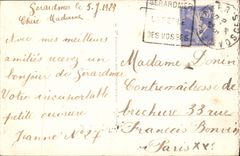 Gérardmer le 5.7.1929
Chère Madame
Avec mes meilleurs
amitiés recevez un
bonjour de Gérardmer
Votre insuportable
petite ouvrière
Jeanne N° 27
GERARDMER
DES VOSGES
Madame
Contremaîtresse de
brochure 33 rue
François Bonvin
Paris XVe